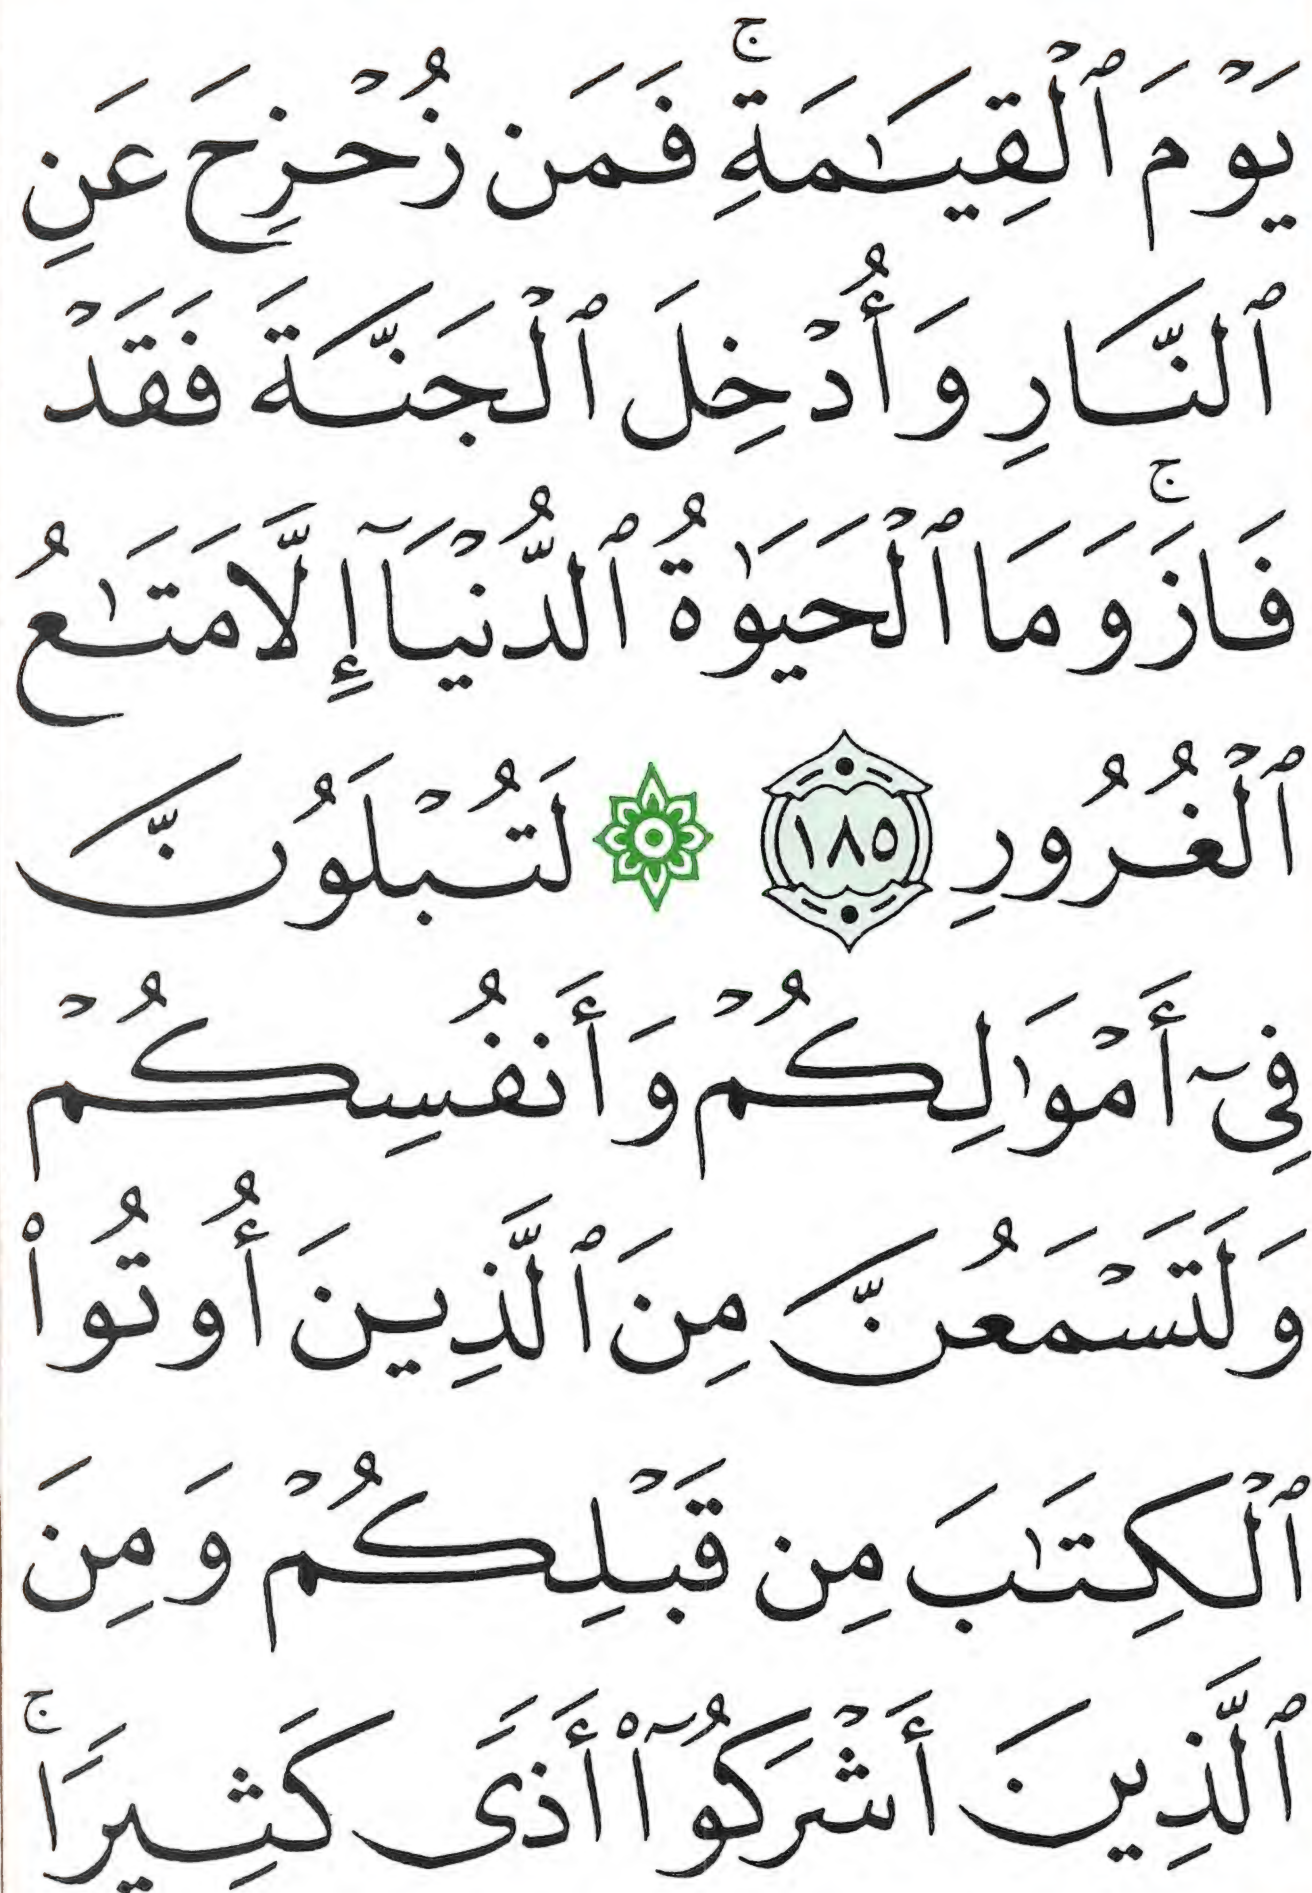 يَوْمَ ٱلْقِيَـٰمَةِ ۚ فَمَن زُحْزِحَ عَنِ
ٱلنَّارِ وَأُدْخِلَ ٱلْجَنَّةَ فَقَدْ
فَازَ ۚ وَمَا ٱلْحَيَوٰةُ ٱلدُّنْيَآ إِلَّا مَتَـٰعُ
ٱلْغُرُورِ ١٨٥ ۞ لَتُبْلَوُنَّ
فِىٓ أَمْوَٰلِكُمْ وَأَنفُسِكُمْ
وَلَتَسْمَعُنَّ مِنَ ٱلَّذِينَ أُوتُوا۟
ٱلْكِتَـٰبَ مِن قَبْلِكُمْ وَمِنَ
ٱلَّذِينَ أَشْرَكُوٓا۟ أَذًى كَثِيرًا ۚ